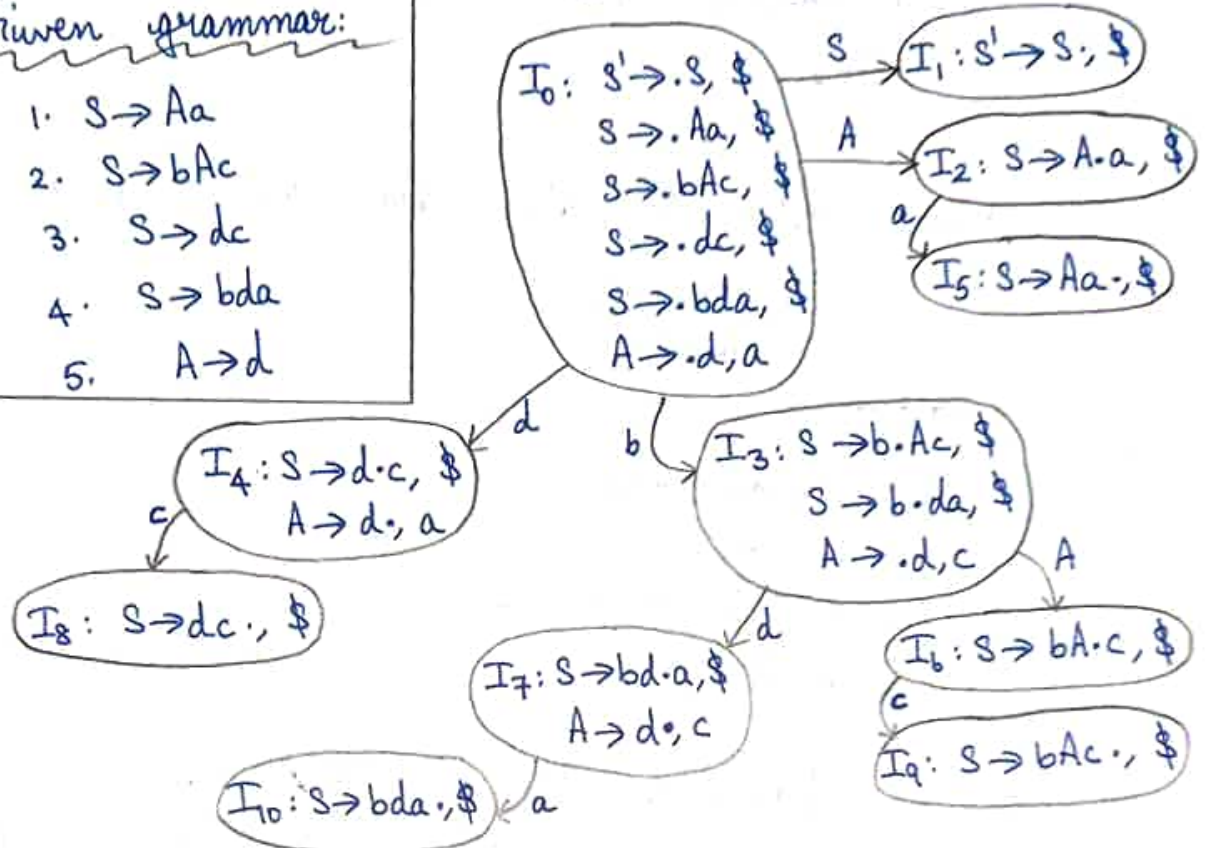 Given grammar:
1. S→Aa
2. S→bAc
3. S→dc
4. S→bda
5. A→d
I₀: S'→.S, $
S→.Aa, $
S→.bAc, $
S→.dc, $
S→.bda, $
A→.d, a
S
I₁: S'→S., $
A
I₂: S→A.a, $
a
I₅: S→Aa., $
d
b
I₄: S→d.c, $
A→d., a
c
I₈: S→dc., $
I₃: S→b.Ac, $
S→b.da, $
A→.d, c
A
d
I₆: S→bA.c, $
c
I₉: S→bAc., $
I₇: S→bd.a, $
A→d., c
a
I₁₀: S→bda., $